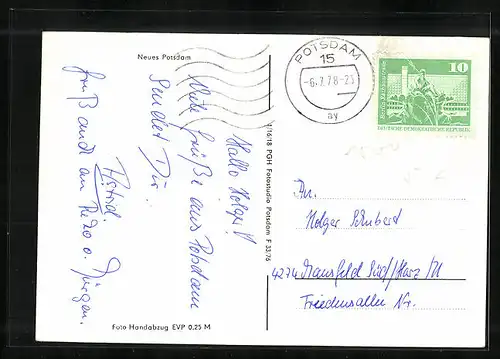 Neues Potsdam
Hallo Holger!
Viele Grüße aus Potsdam
sendet Dir
Astrid.
Gruß auch an
Jürgen.
Foto Handabzug EVP 0,25 M
I/16/18 PGH Fotostudio Potsdam F 33/76
POTSDAM
15
-6.7.78-23
ay
10
DEUTSCHE DEMOKRATISCHE REPUBLIK
An.
Holger Schubert
4274 Mansfeld Süd/Harz/M
Friedensallee Nr.